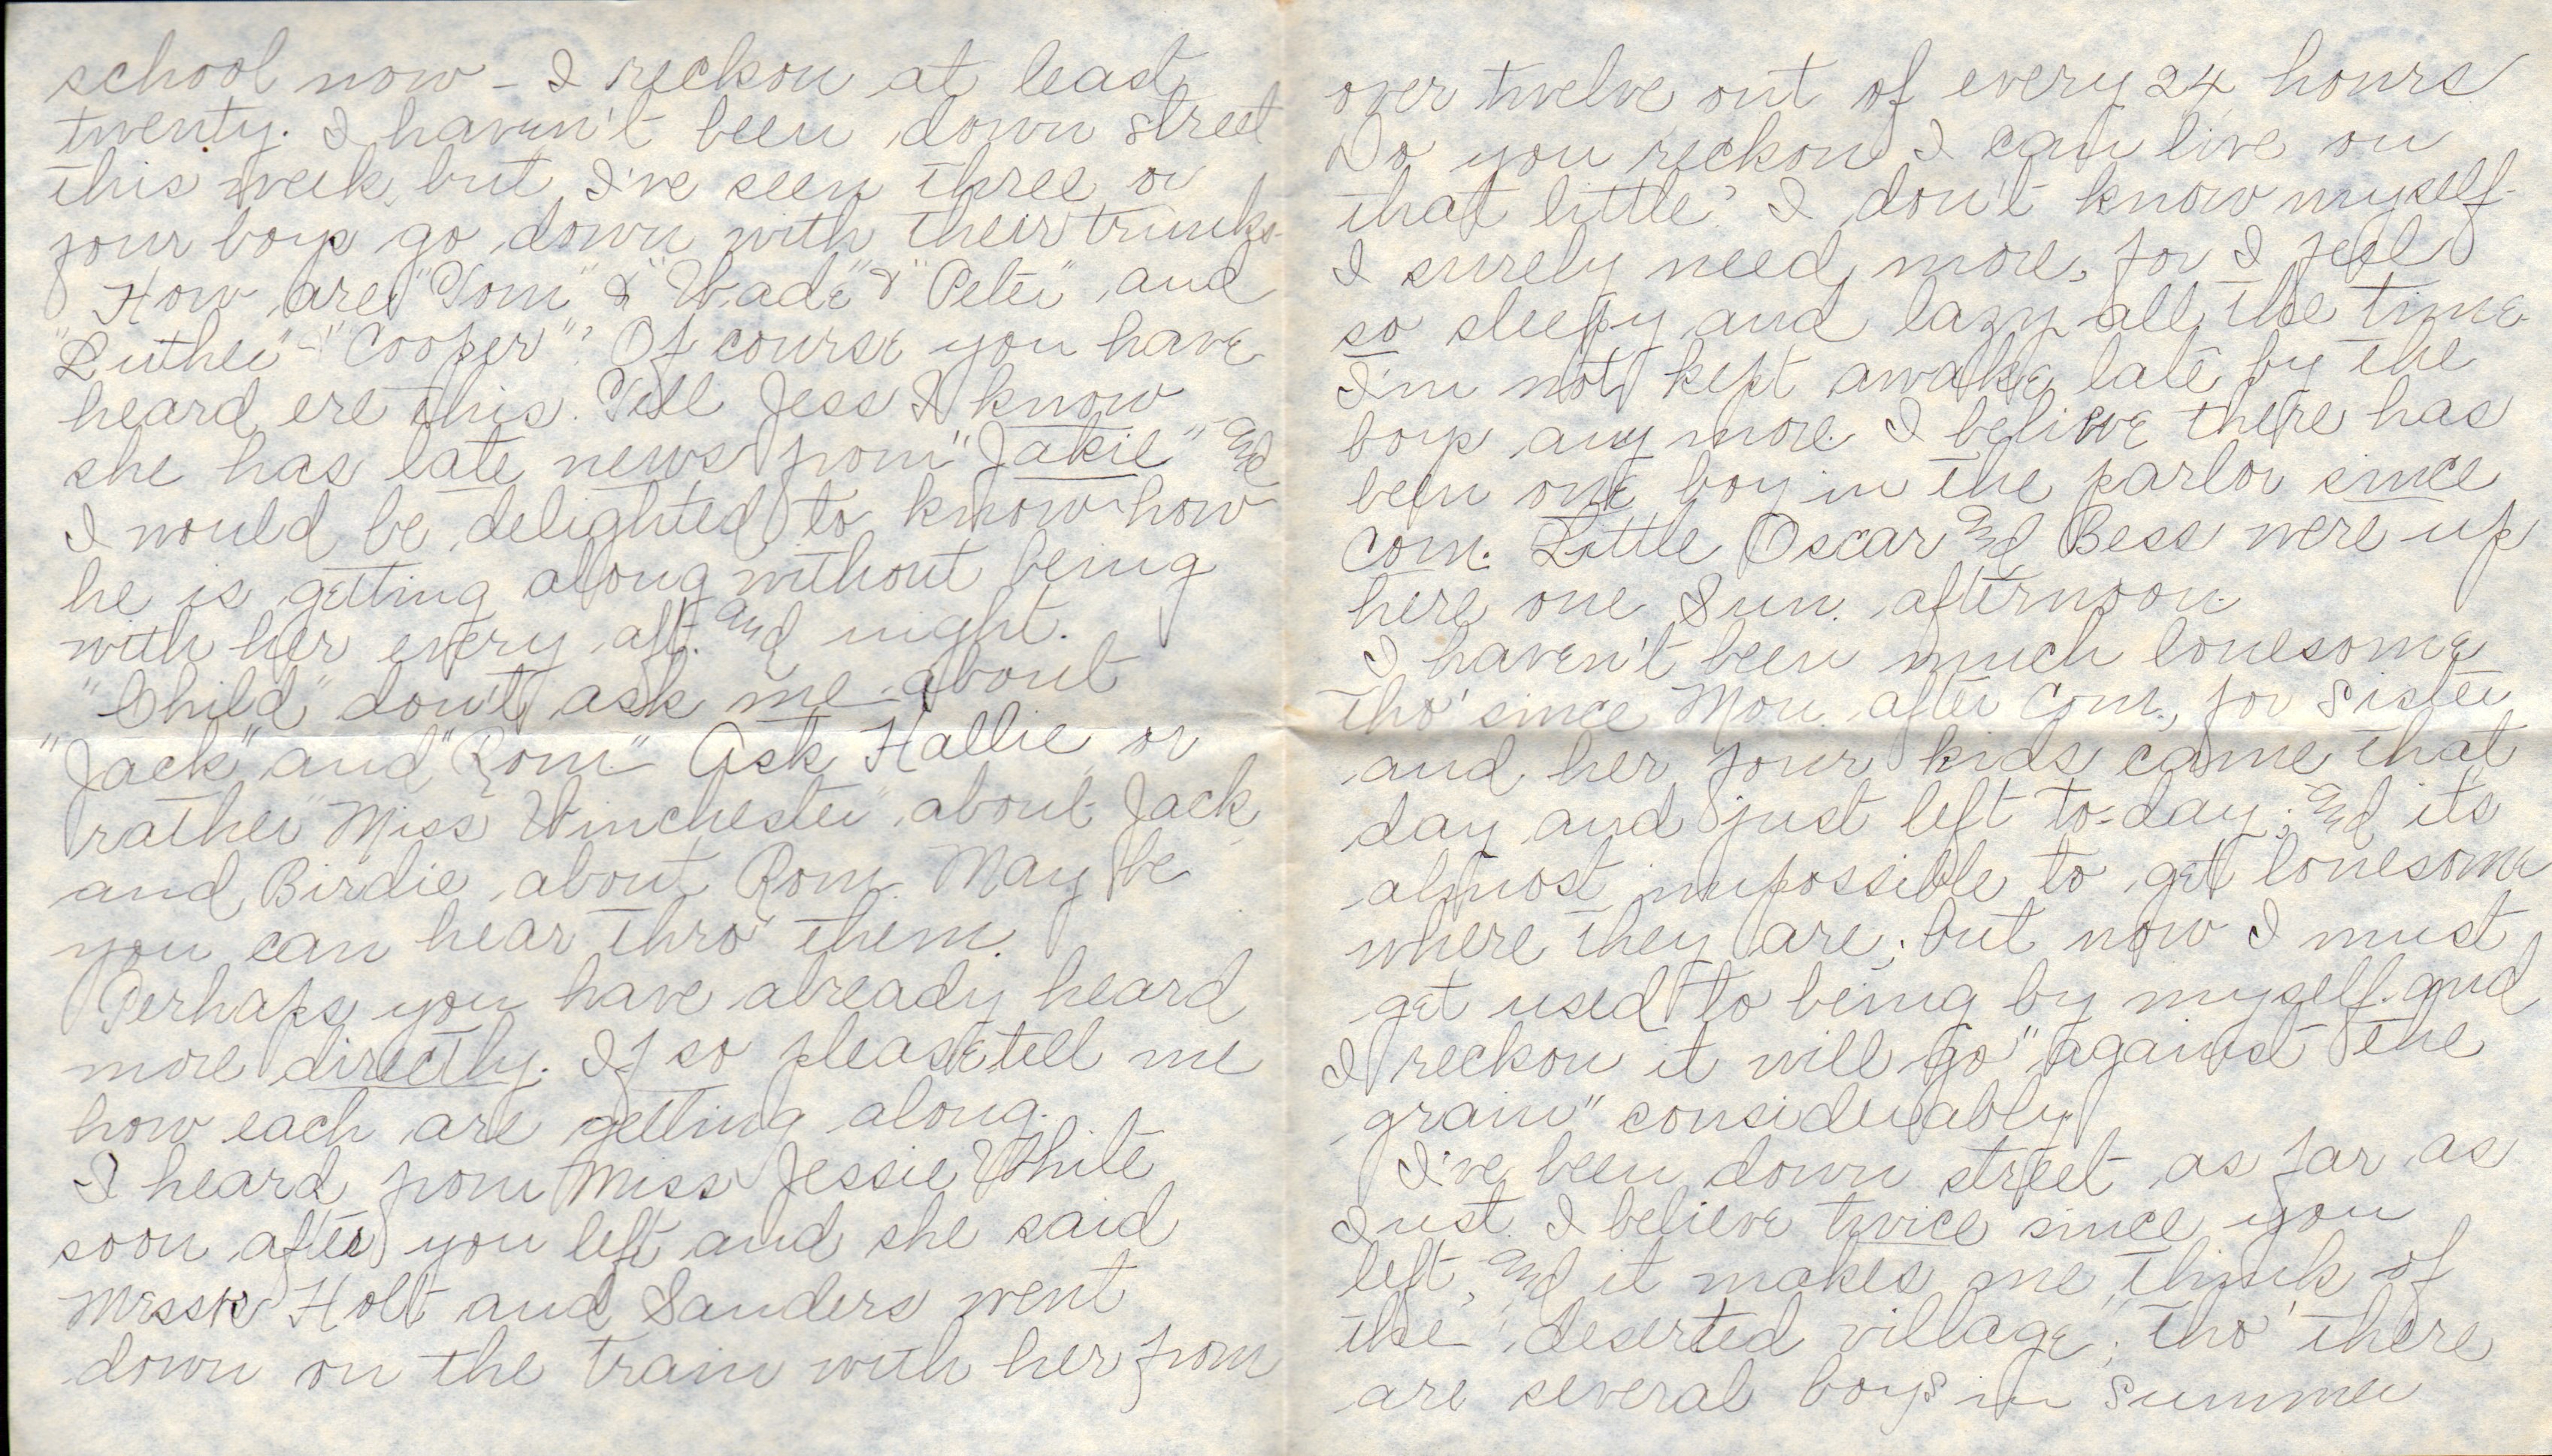 school now - I reckon at least
twenty. I haven't been down street
this week, but I've seen three or
four boys go down with their trunks.
How are "Tom" & "Wade" & "Peter" and
"Luther" - "Cooper"? Of course you have
heard ere this. Tell Jess I know
she has late news from "Jakie" and
I would be delighted to know how
he is getting along without being
with her every aft. and night.
"Child" don't ask me about
"Jack" and "Rom" Ask Hallie or
rather "Miss Winchester" about Jack
and Birdie about Rom. May be
you can hear thro' them.
Perhaps you have already heard
more directly. If so please tell me
how each are getting along.
I heard from Miss Jessie White
soon after you left and she said
Holt and Sanders went
down on the train with her from
over twelve out of every 24 hours
Do you reckon I can live on
that little? I don't know myself.
I surely need more, for I feel
so sleepy and lazy all the time.
I'm not kept awake late by the
boys any more. I believe there has
been one boy in the parlor since
Com. Little Oscar and Bess were up
here one Sun. afternoon.
I haven't been much lonesome
tho' since Mon. after Com., for Sister
and her four kids came that
day and just left to-day; and its
almost impossible to get lonesome
where they are; but now I must
get used to being by myself. and
I reckon it will go "against the
grain" considerably
I've been down street as far as
Just I believe twice since you
left, and it makes me think of
the "deserted village; tho' there
are several boys in Summer